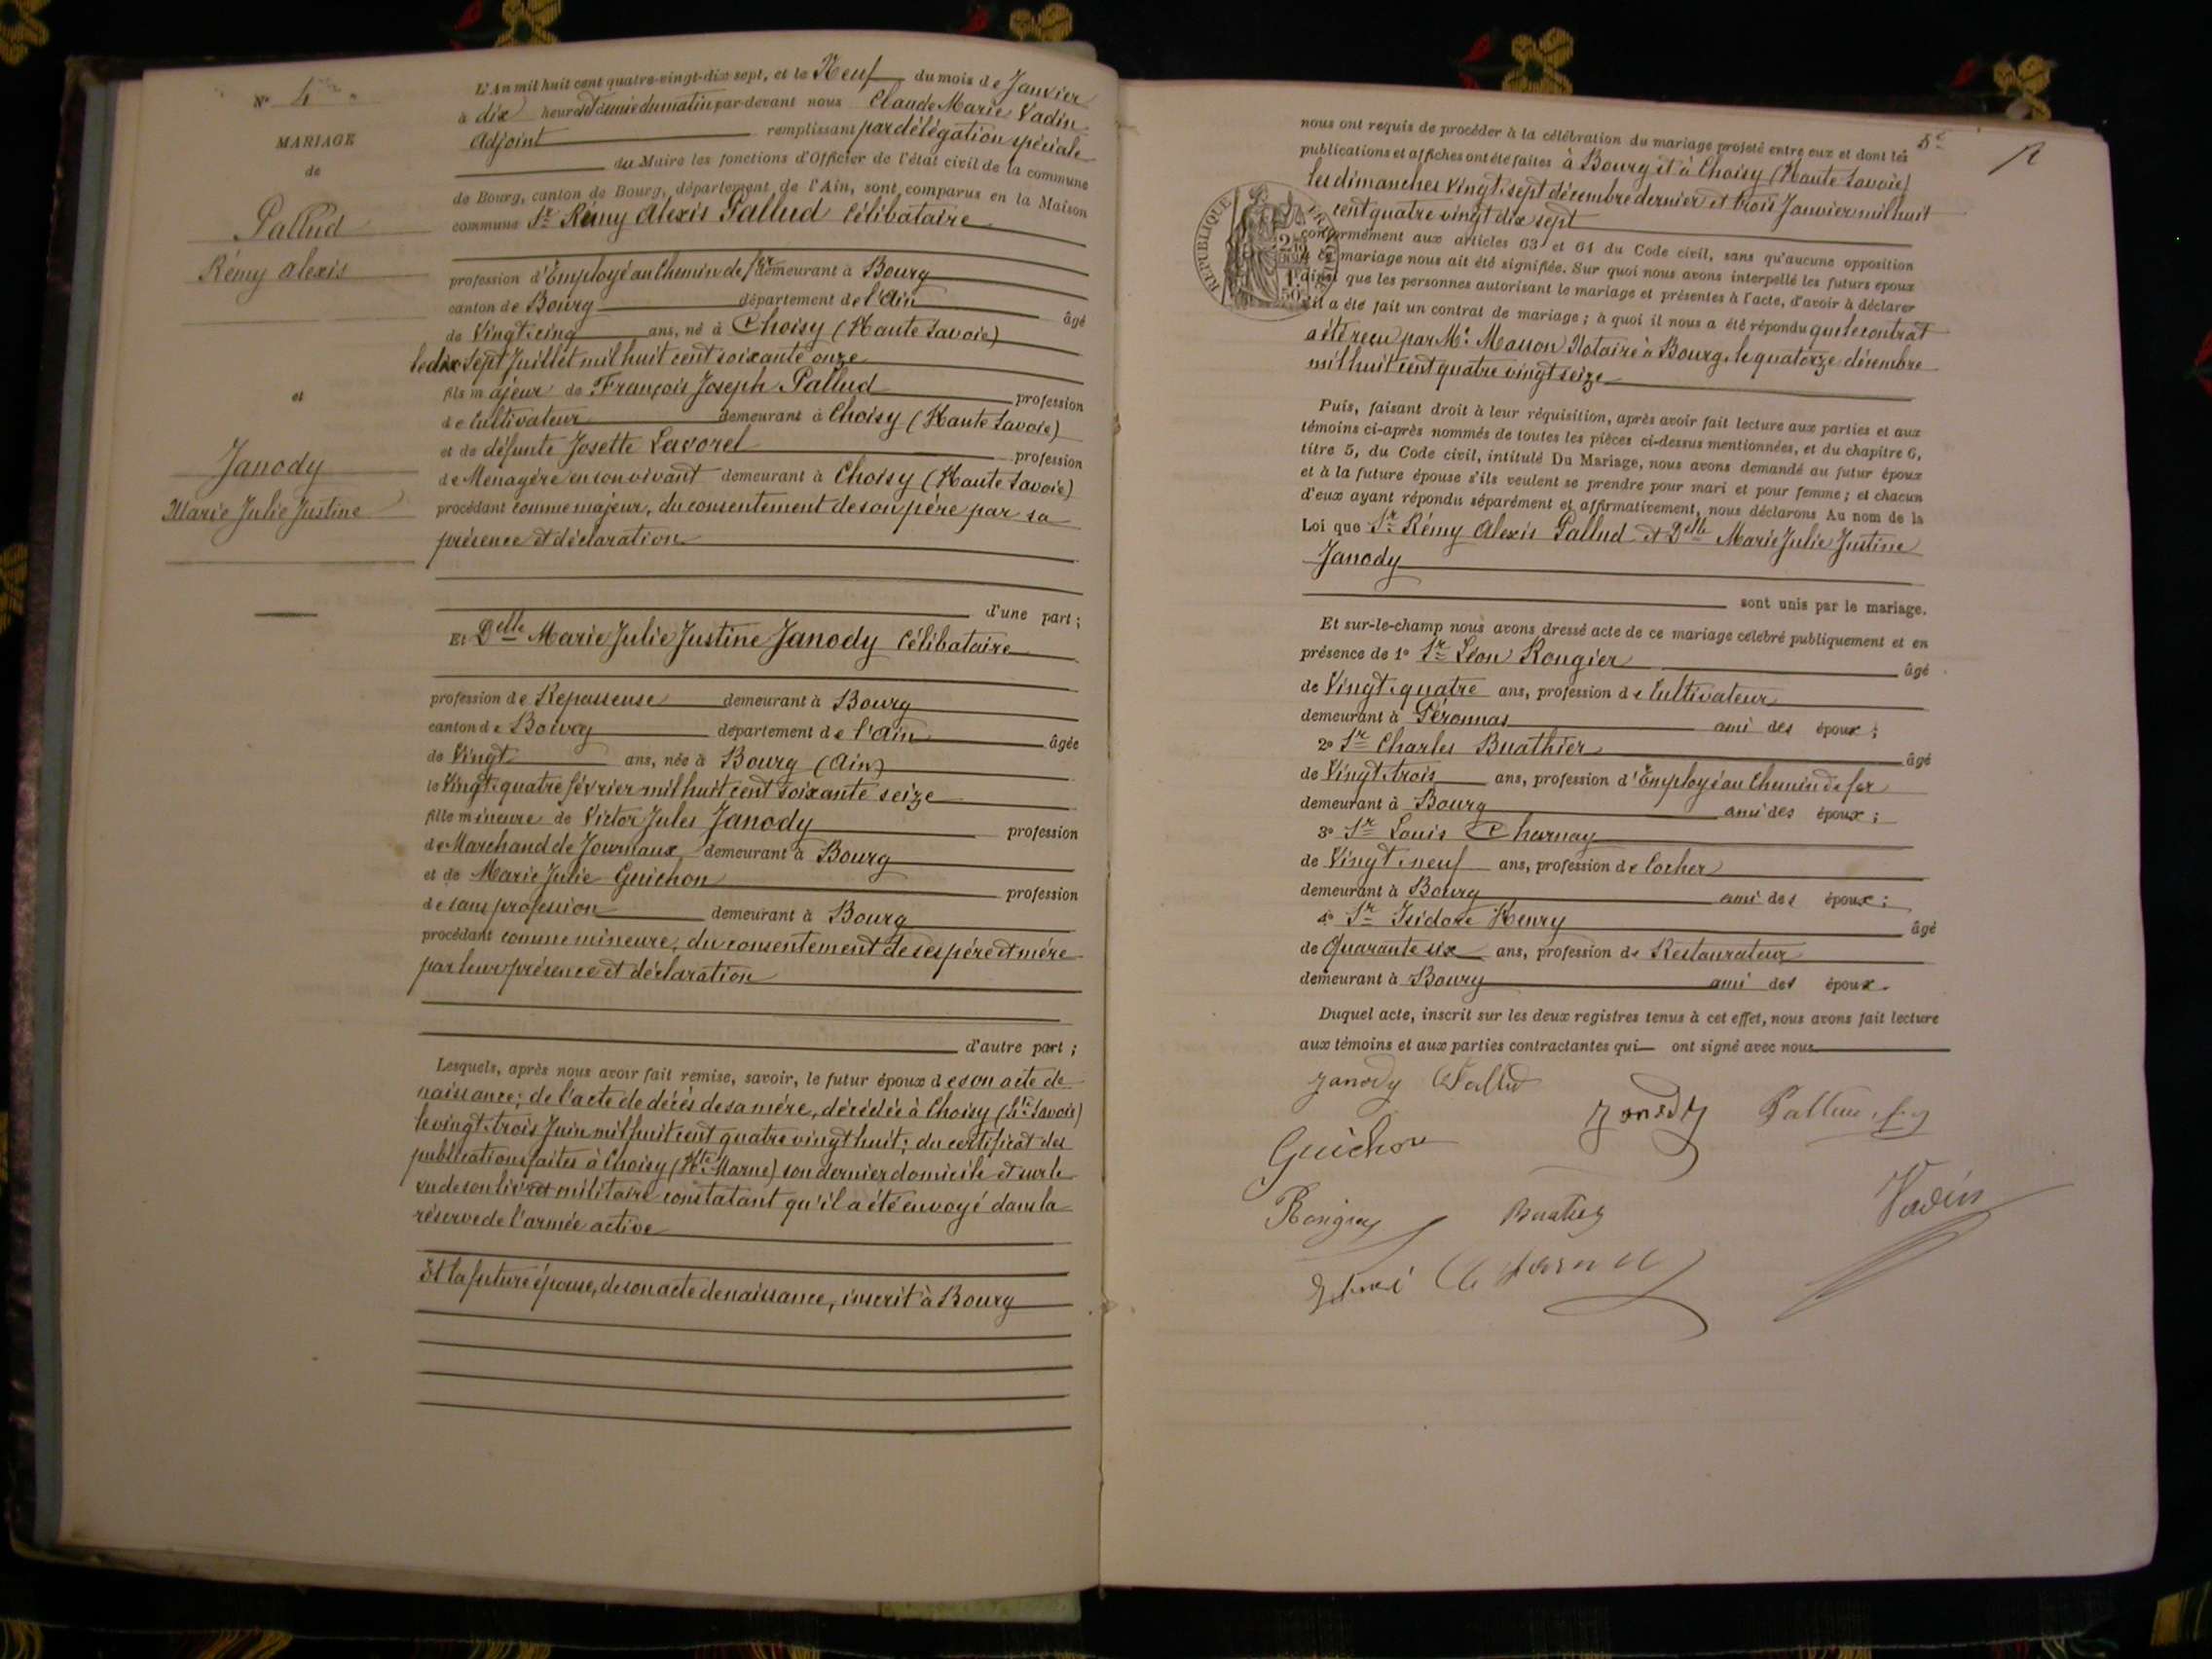 N° 4
MARIAGE
de
Pallud
Rémy Alexis
et
Janody
Marie Julie Justine
L'An mil huit cent quatre-vingt-dix sept, et le Neuf du mois de Janvier
à dix heures et demie du matin par-devant nous Claude Marie Vadin
Adjoint remplissant par délégation spéciale
du Maire les fonctions d'Officier de l'état civil de la commune
de Bourg, canton de Bourg, département de l'Ain, sont comparus en la Maison
commune Sr Rémy Alexis Pallud Célibataire
profession d'Employé au Chemin de fer demeurant à Bourg
canton de Bourg département de l'Ain âgé
de Vingt-cinq ans, né à Choisy (Haute Savoie)
le dix Sept Juillet mil huit cent soixante onze
fils majeur de François Joseph Pallud profession
de Cultivateur demeurant à Choisy (Haute Savoie)
et de défunte Josette Lavorel profession
de Ménagère en son vivant demeurant à Choisy (Haute Savoie)
procédant comme majeur, du consentement de son père par sa
présence et déclaration
d'une part;
Et Delle Marie Julie Justine Janody Célibataire
profession de Repasseuse demeurant à Bourg
canton de Bourg département de l'Ain âgée
de Vingt ans, née à Bourg (Ain)
le Vingt-quatre février mil huit cent soixante seize
fille mineure de Victor Jules Janody profession
de Marchand de Journaux demeurant à Bourg
et de Marie Julie Guichon profession
de sans profession demeurant à Bourg
procédant comme mineure, du consentement de ses père et mère
par leur présence et déclaration
d'autre part;
Lesquels, après nous avoir fait remise, savoir, le futur époux de son acte de
naissance; de l'acte de décès de sa mère, décédée à Choisy (Hte Savoie)
le vingt-trois Juin mil huit cent quatre vingt huit; du certificat des
publications faites à Choisy (Hte Marne) son dernier domicile et sur le
vu de son livret militaire constatant qu'il a été envoyé dans la
réserve de l'armée active
Et la future épouse, de son acte de naissance, inscrit à Bourg
5e
nous ont requis de procéder à la célébration du mariage projeté entre eux et dont les
publications et affiches ont été faites à Bourg et à Choisy (Haute Savoie)
les dimanches Vingt-sept décembre dernier et trois Janvier mil huit
cent quatre vingt dix sept
REPUBLIQUE
conformément aux articles 63 et 64 du Code civil, sans qu'aucune opposition
à ce mariage nous ait été signifiée. Sur quoi nous avons interpellé les futurs époux
ainsi que les personnes autorisant le mariage et présentes à l'acte, d'avoir à déclarer
s'il a été fait un contrat de mariage; à quoi il nous a été répondu que le contrat
a été reçu par Me Masson Notaire à Bourg, le quatorze décembre
mil huit cent quatre vingt seize
Puis, faisant droit à leur réquisition, après avoir fait lecture aux parties et aux
témoins ci-après nommés de toutes les pièces ci-dessus mentionnées, et du chapitre 6,
titre 5, du Code civil, intitulé Du Mariage, nous avons demandé au futur époux
et à la future épouse s'ils veulent se prendre pour mari et pour femme; et chacun
d'eux ayant répondu séparément et affirmativement, nous déclarons Au nom de la
Loi que Sr Rémy Alexis Pallud et Delle Marie Julie Justine
Janody
sont unis par le mariage.
Et sur-le-champ nous avons dressé acte de ce mariage célébré publiquement et en
présence de 1° Sr Léon Rongier âgé
de Vingt-quatre ans, profession de Cultivateur
demeurant à Péronnas ami des époux;
2° Sr Charles Buathier âgé
de Vingt-trois ans, profession d'Employé au Chemin de fer
demeurant à Bourg ami des époux;
3° Sr Louis Charnay
de Vingt-neuf ans, profession de Cocher
demeurant à Bourg ami des époux;
4° Sr Isidore Henry âgé
de Quarante six ans, profession de Restaurateur
demeurant à Bourg ami des époux.
Duquel acte, inscrit sur les deux registres tenus à cet effet, nous avons fait lecture
aux témoins et aux parties contractantes qui ont signé avec nous
Janody Pallud
Janody Pallud
Guichon
Rongier Buathier Vadin